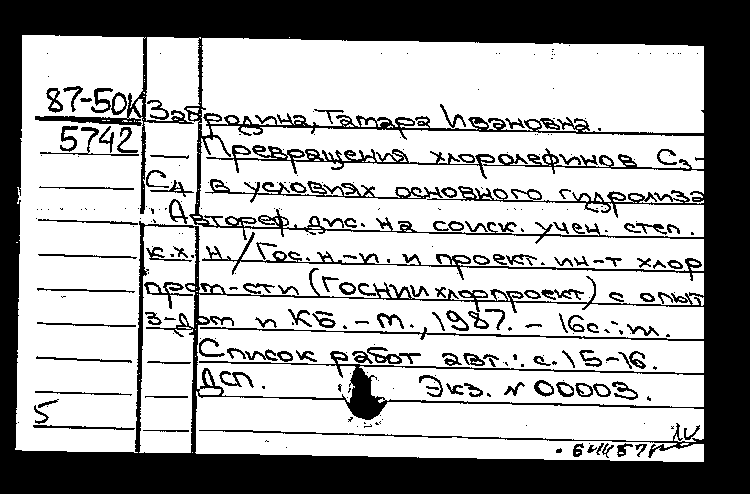 87-50К Забродина, Тамара Ивановна.
5742 Превращения хлоролефинов С3-
С4 в условиях основного гидролиза
: Автореф. дис. на соиск. учен. степ.
к.х.н. / Гос. н.-и. и проект. ин-т хлор
пром-сти (ГОСНИИхлорпроект) с опыт
з-дом и КБ. - М., 1987. - 16с.: ил.
Список работ авт.: с. 15-16.
ДСП. Экз. N 00003.
5